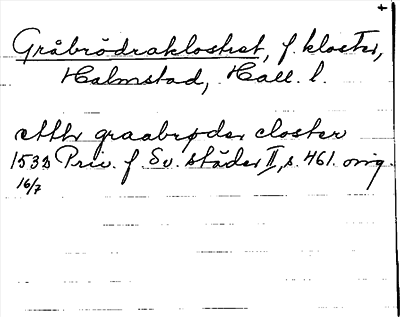 Gråbrödraklostret, f. kloster,
Halmstad, Hall. l.
etthr graabrøder closter
1532 Priv. f. Sv. städer II, s. 461. orig.
16/7